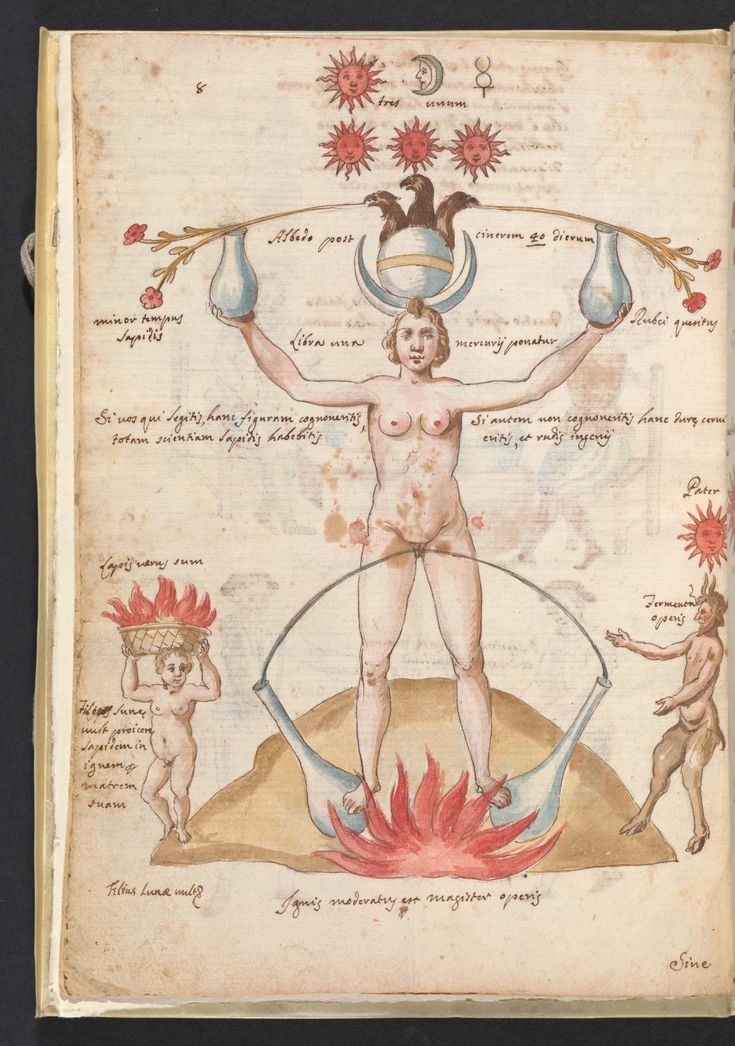 8
tres unum
Albedo post cinerem 40 dierum
minor tempus
lapidis
Rubei queritus
Libra una mercurij ponatur
Si vos qui legitis, hanc figuram cognoveritis,
totam scientiam lapidis habebitis
Si autem non cognoveritis hanc durę cervi
eritis, et rudis ingenij
Pater
Lapis verus sum
Fermentum
operis
Filius lunę
vult proicere
lapidem in
ignem
matrem
suam
Filius Lunæ vult
Ignis moderatus est magister operis
Sine